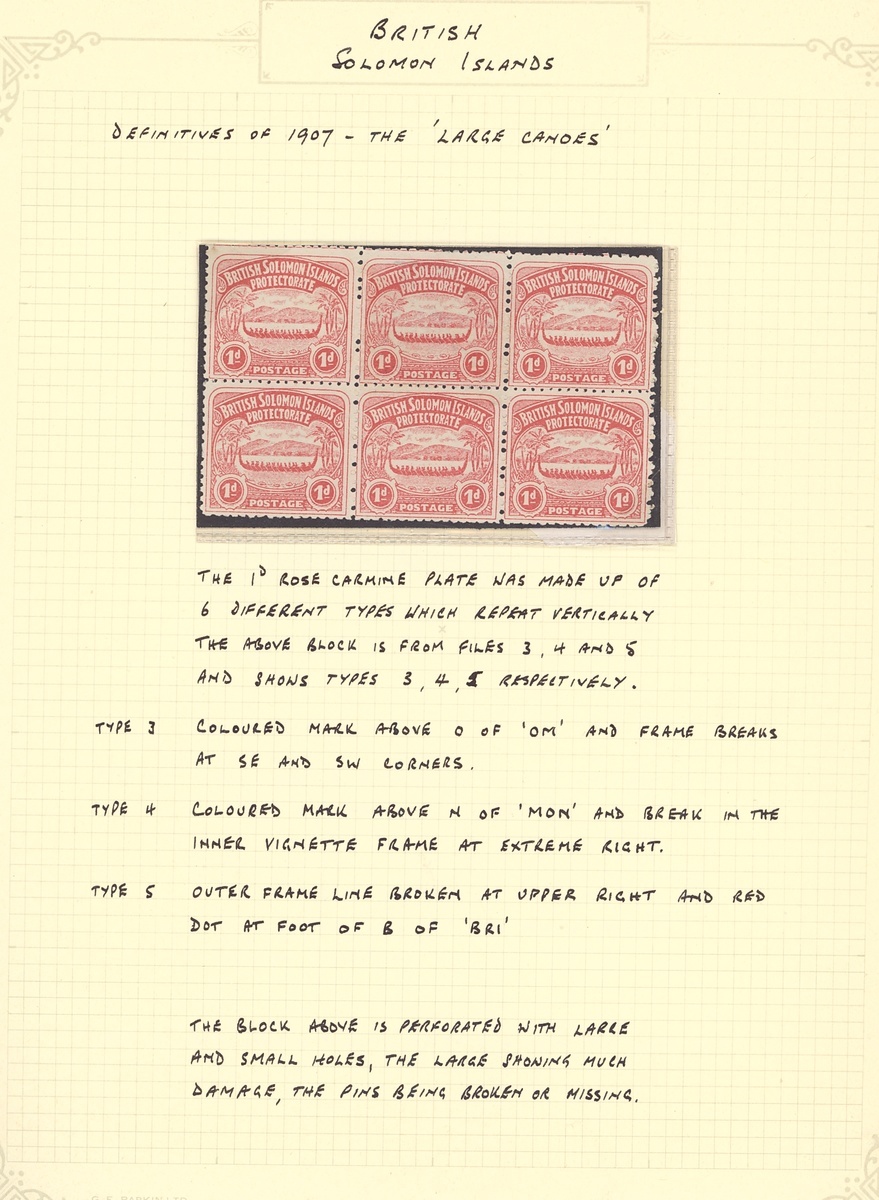 BRITISH
SOLOMON ISLANDS
DEFINITIVES OF 1907 - THE 'LARGE CANOES'
BRITISH SOLOMON ISLANDS
PROTECTORATE
1d 1d
POSTAGE
BRITISH SOLOMON ISLANDS
PROTECTORATE
1d 1d
POSTAGE
BRITISH SOLOMON ISLANDS
PROTECTORATE
1d 1d
POSTAGE
BRITISH SOLOMON ISLANDS
PROTECTORATE
1d 1d
POSTAGE
BRITISH SOLOMON ISLANDS
PROTECTORATE
1d 1d
POSTAGE
BRITISH SOLOMON ISLANDS
PROTECTORATE
1d 1d
POSTAGE
THE 1D ROSE CARMINE PLATE WAS MADE UP OF
6 DIFFERENT TYPES WHICH REPEAT VERTICALLY
THE ABOVE BLOCK IS FROM FILES 3, 4 AND 5
AND SHOWS TYPES 3, 4, 5 RESPECTIVELY.
TYPE 3 COLOURED MARK ABOVE O OF 'OM' AND FRAME BREAKS
AT SE AND SW CORNERS.
TYPE 4 COLOURED MARK ABOVE N OF 'MON' AND BREAK IN THE
INNER VIGNETTE FRAME AT EXTREME RIGHT.
TYPE 5 OUTER FRAME LINE BROKEN AT UPPER RIGHT AND RED
DOT AT FOOT OF B OF 'BRI'
THE BLOCK ABOVE IS PERFORATED WITH LARGE
AND SMALL HOLES, THE LARGE SHOWING MUCH
DAMAGE, THE PINS BEING BROKEN OR MISSING.